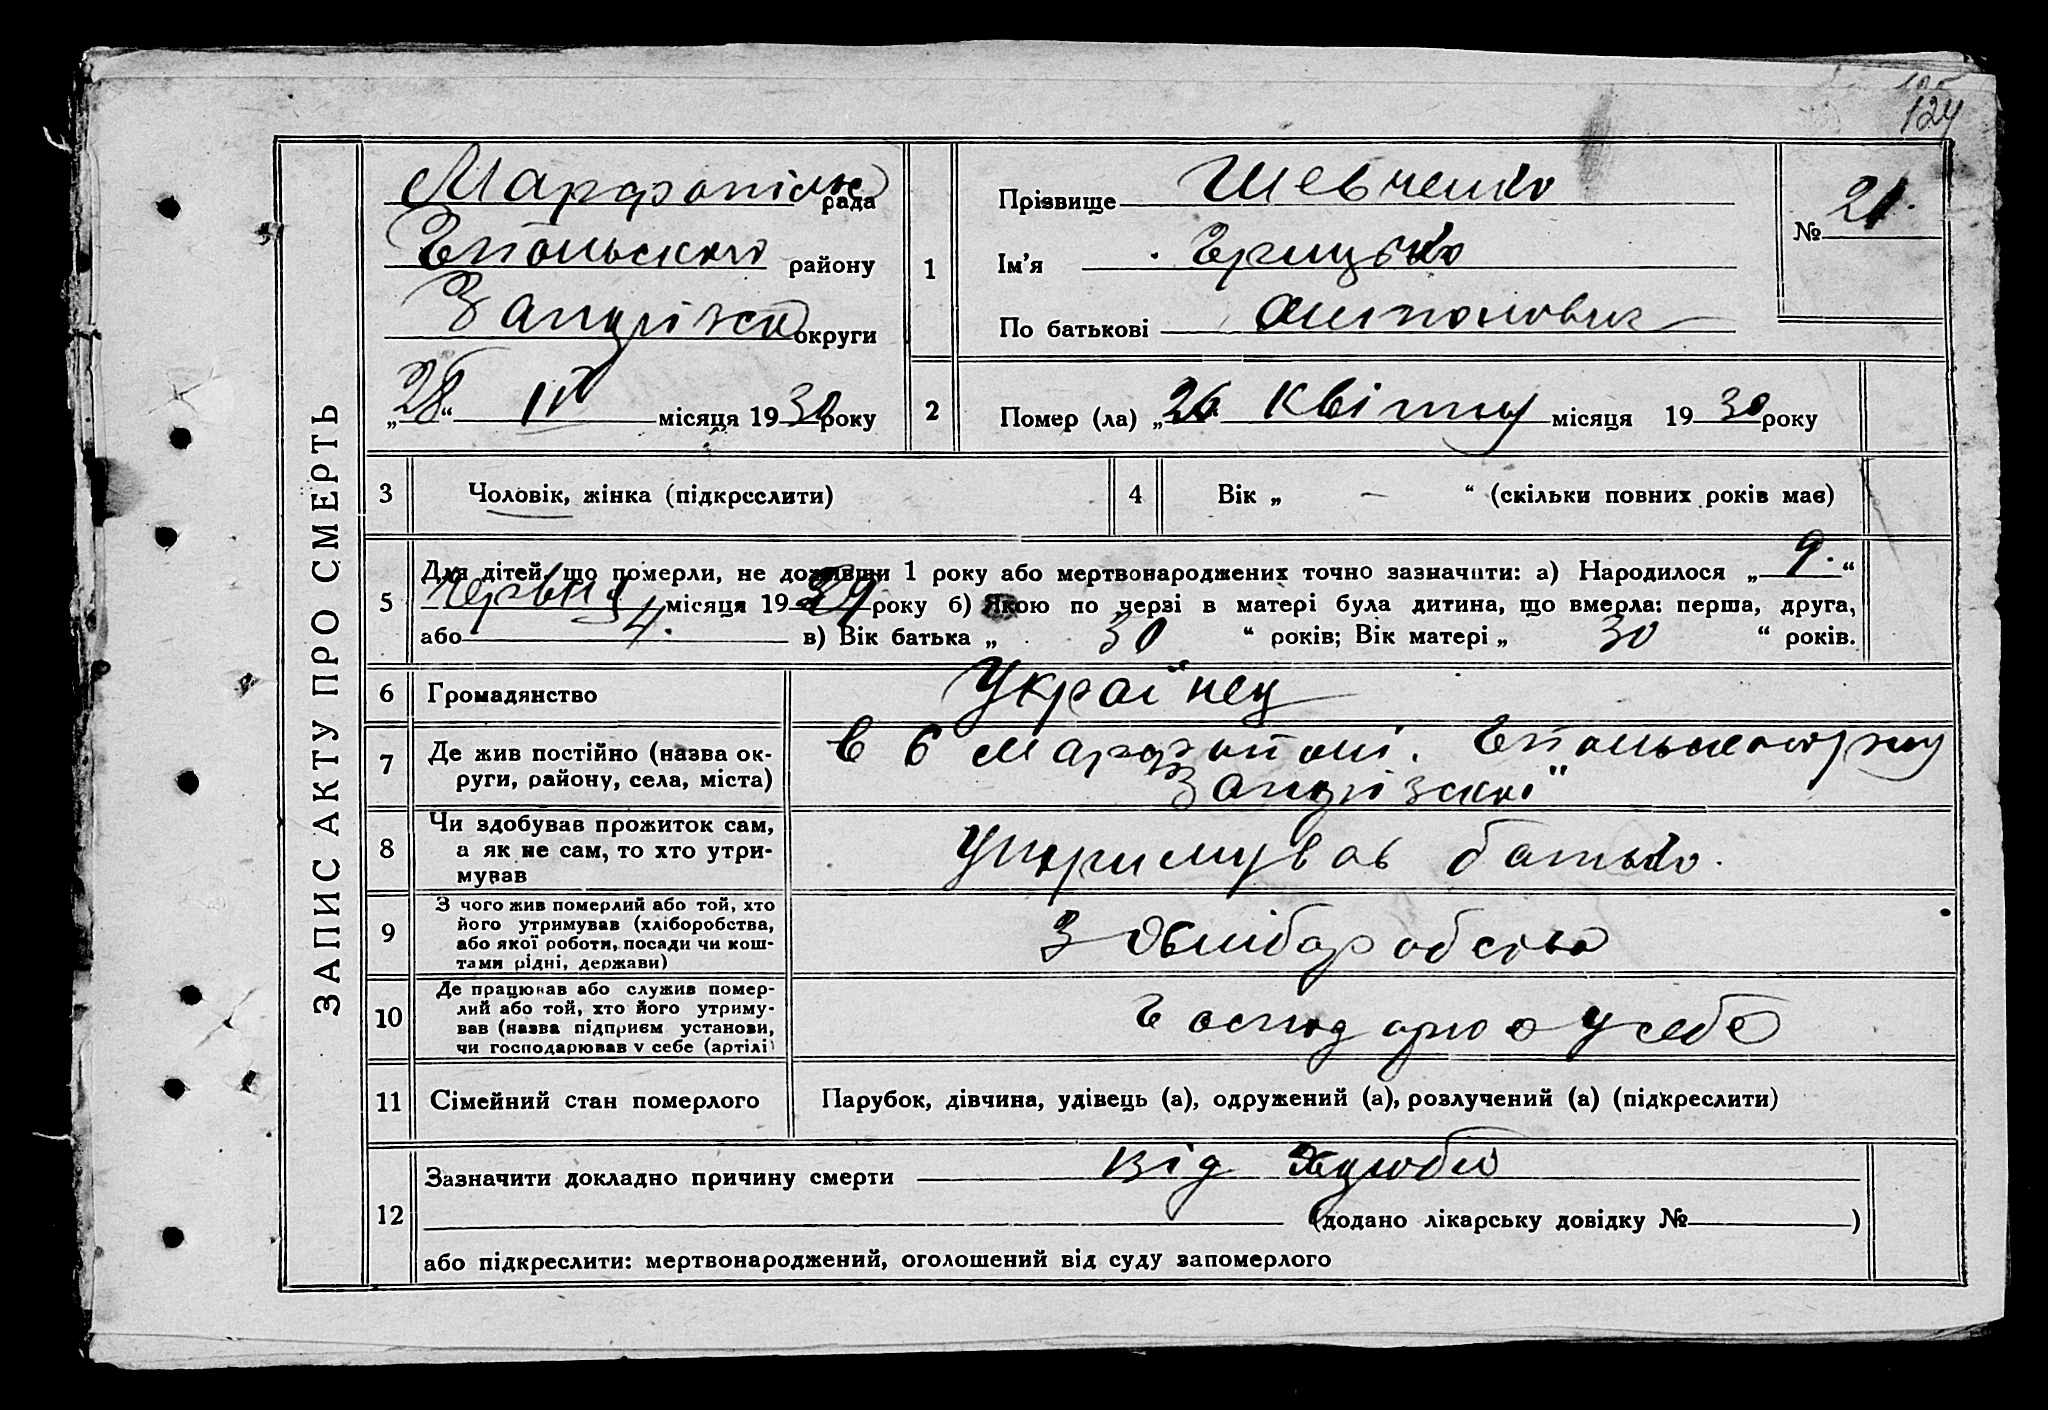 124
ЗАПИС АКТУ ПРО СМЕРТЬ
Марфопільс рада
Гпольского району
Запоріжск округи
„28“ IV місяця 1930 року
1
Прізвище Шевченко
Ім'я Грицько
По батькові Антонович
№ 21.
2
Помер (ла) „26 Квітну місяця 1930 року
3 Чоловік, жінка (підкреслити)
4 Вік „ — “ (скільки повних років має)
5
Для дітей, що померли, не доживши 1 року або мертвонароджених точно зазначити: а) Народилося „9.“
Червня місяця 1929 року б) Якою по черзі в матері була дитина, що вмерла: перша, друга,
або 4. в) Вік батька „ 30 “ років; Вік матері „ 30 “ років.
6 Громадянство Українец
7
Де жив постійно (назва ок-
руги, району, села, міста)
в с Марфополі. Гпольского р-ну
8
Чи здобував прожиток сам,
а як не сам, то хто утри-
мував
Утримував батько.
9
З чого жив померлий або той, хто
його утримував (хліборобства,
або якої роботи, посади чи кош-
тами рідні, держави)
З хліборобства
10
Де працював або служив помер-
лий або той, хто його утриму-
вав (назва підприєм установи,
чи господарював у себе (артілі)
Господарює у себе
11 Сімейний стан померлого Парубок, дівчина, удівець (а), одружений (а), розлучений (а) (підкреслити)
12
Зазначити докладно причину смерти від
(додано лікарську довідку № )
або підкреслити: мертвонароджений, оголошений від суду запомерлого